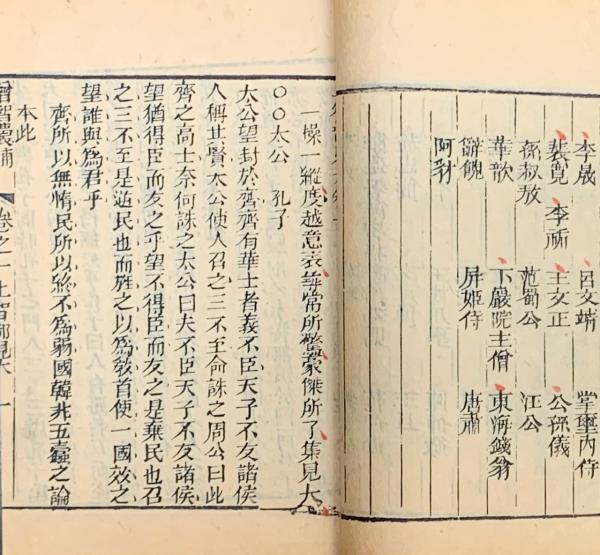 李晟 呂文靖 掌璽內侍
裴寬 李祐 王文正 公孫儀
孫叔敖 范蜀公 江公
華歆 下巖院主僧 東海錢翁
辭餽 屏姬侍 唐肅
阿豺
一操一縱度越意表尋常所驚豪傑所了集見大
〇〇太公 孔子
太公望封於齊齊有華士者義不臣天子不友諸侯
人稱其賢太公使人召之三不至命誅之周公曰此
齊之高士奈何誅之太公曰夫不臣天子不友諸侯
望猶得臣而友之乎望不得臣而友之是棄民也召
之三不至是逆民也而旌之以為教首使一國效之
望誰與為君乎
齊所以無惰民所以終不為弱國韓非五蠹之論
本此
增智囊補 卷之一 上智部見大 一